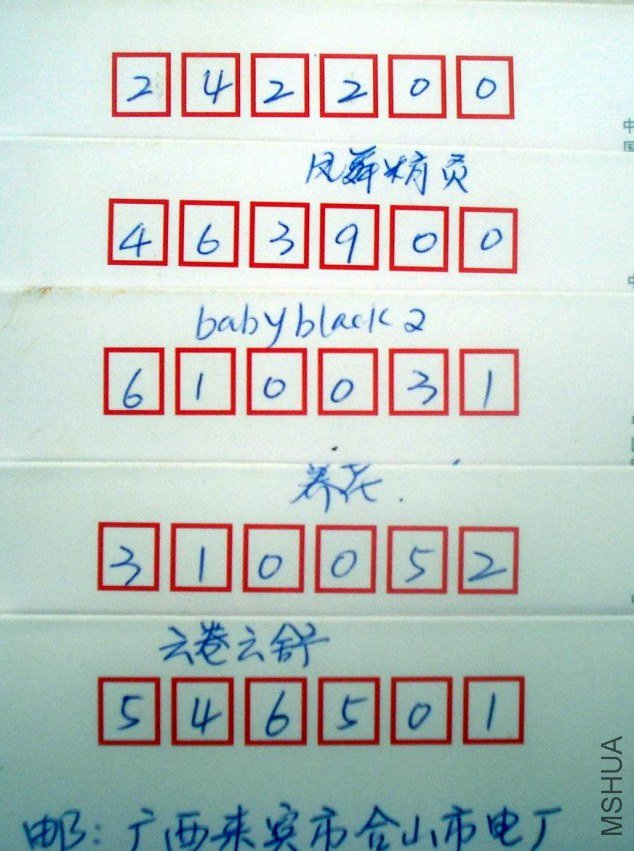 242200
中国
凤舞精灵
463900
中
babyblack2
610031
养花.
310052
云卷云舒
546501
邮:广西来宾市合山市电厂
MSHUA